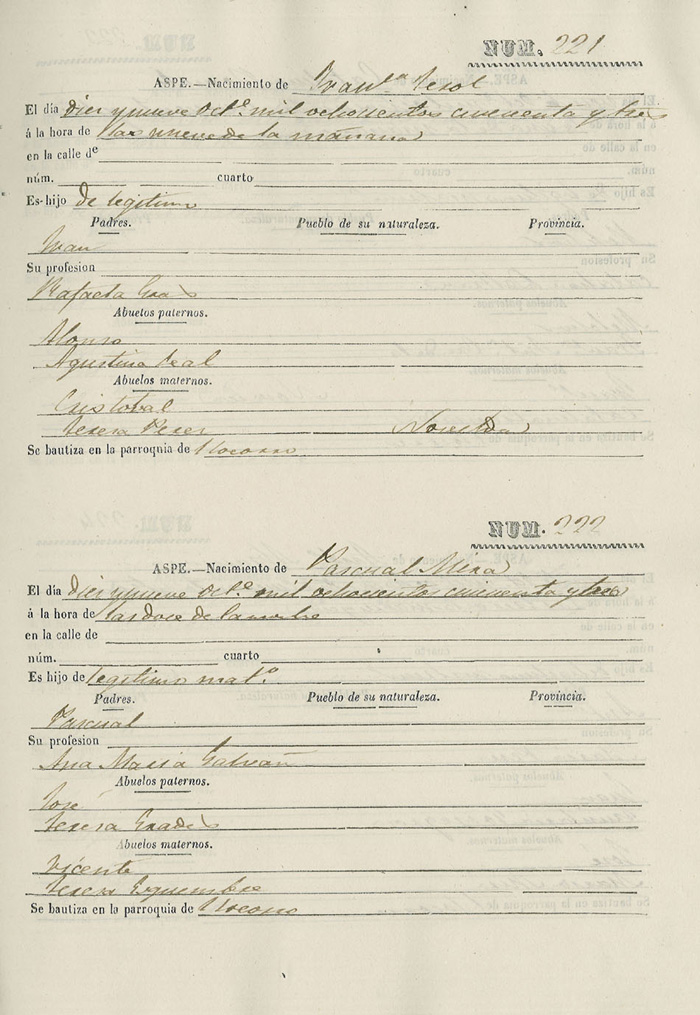 NUM. 221
ASPE.—Nacimiento de Fran.ca Terol
El día diez y nueve Oct.e mil ochocientos cincuenta y tres
á la hora de las nueve de la mañana
en la calle de
núm. cuarto
Es hijo de legitimo
Padres. Pueblo de su naturaleza. Provincia.
Juan
Su profesion
Rafaela
Abuelos paternos.
Alonso
Agustina
Abuelos maternos.
Cristobal
Teresa Perez Novelda
Se bautiza en la parroquia de Socorro
NUM. 222
ASPE.—Nacimiento de Pascual Mira
El día diez y nueve Oct.e mil ochocientos cincuenta y tres
á la hora de las doce de la noche
en la calle de
núm. cuarto
Es hijo de legitimo mat.o
Padres. Pueblo de su naturaleza. Provincia.
Pascual
Su profesion
Ana Maria Galvañ
Abuelos paternos.
José
Teresa
Abuelos maternos.
Vicente
Teresa
Se bautiza en la parroquia de Socorro